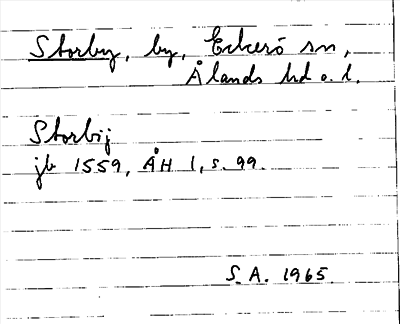 Storby, by, Eckerö sn,
Ålands hd o. l.
Storbij
jb 1559, ÅH 1, s. 99.
S. A. 1965.